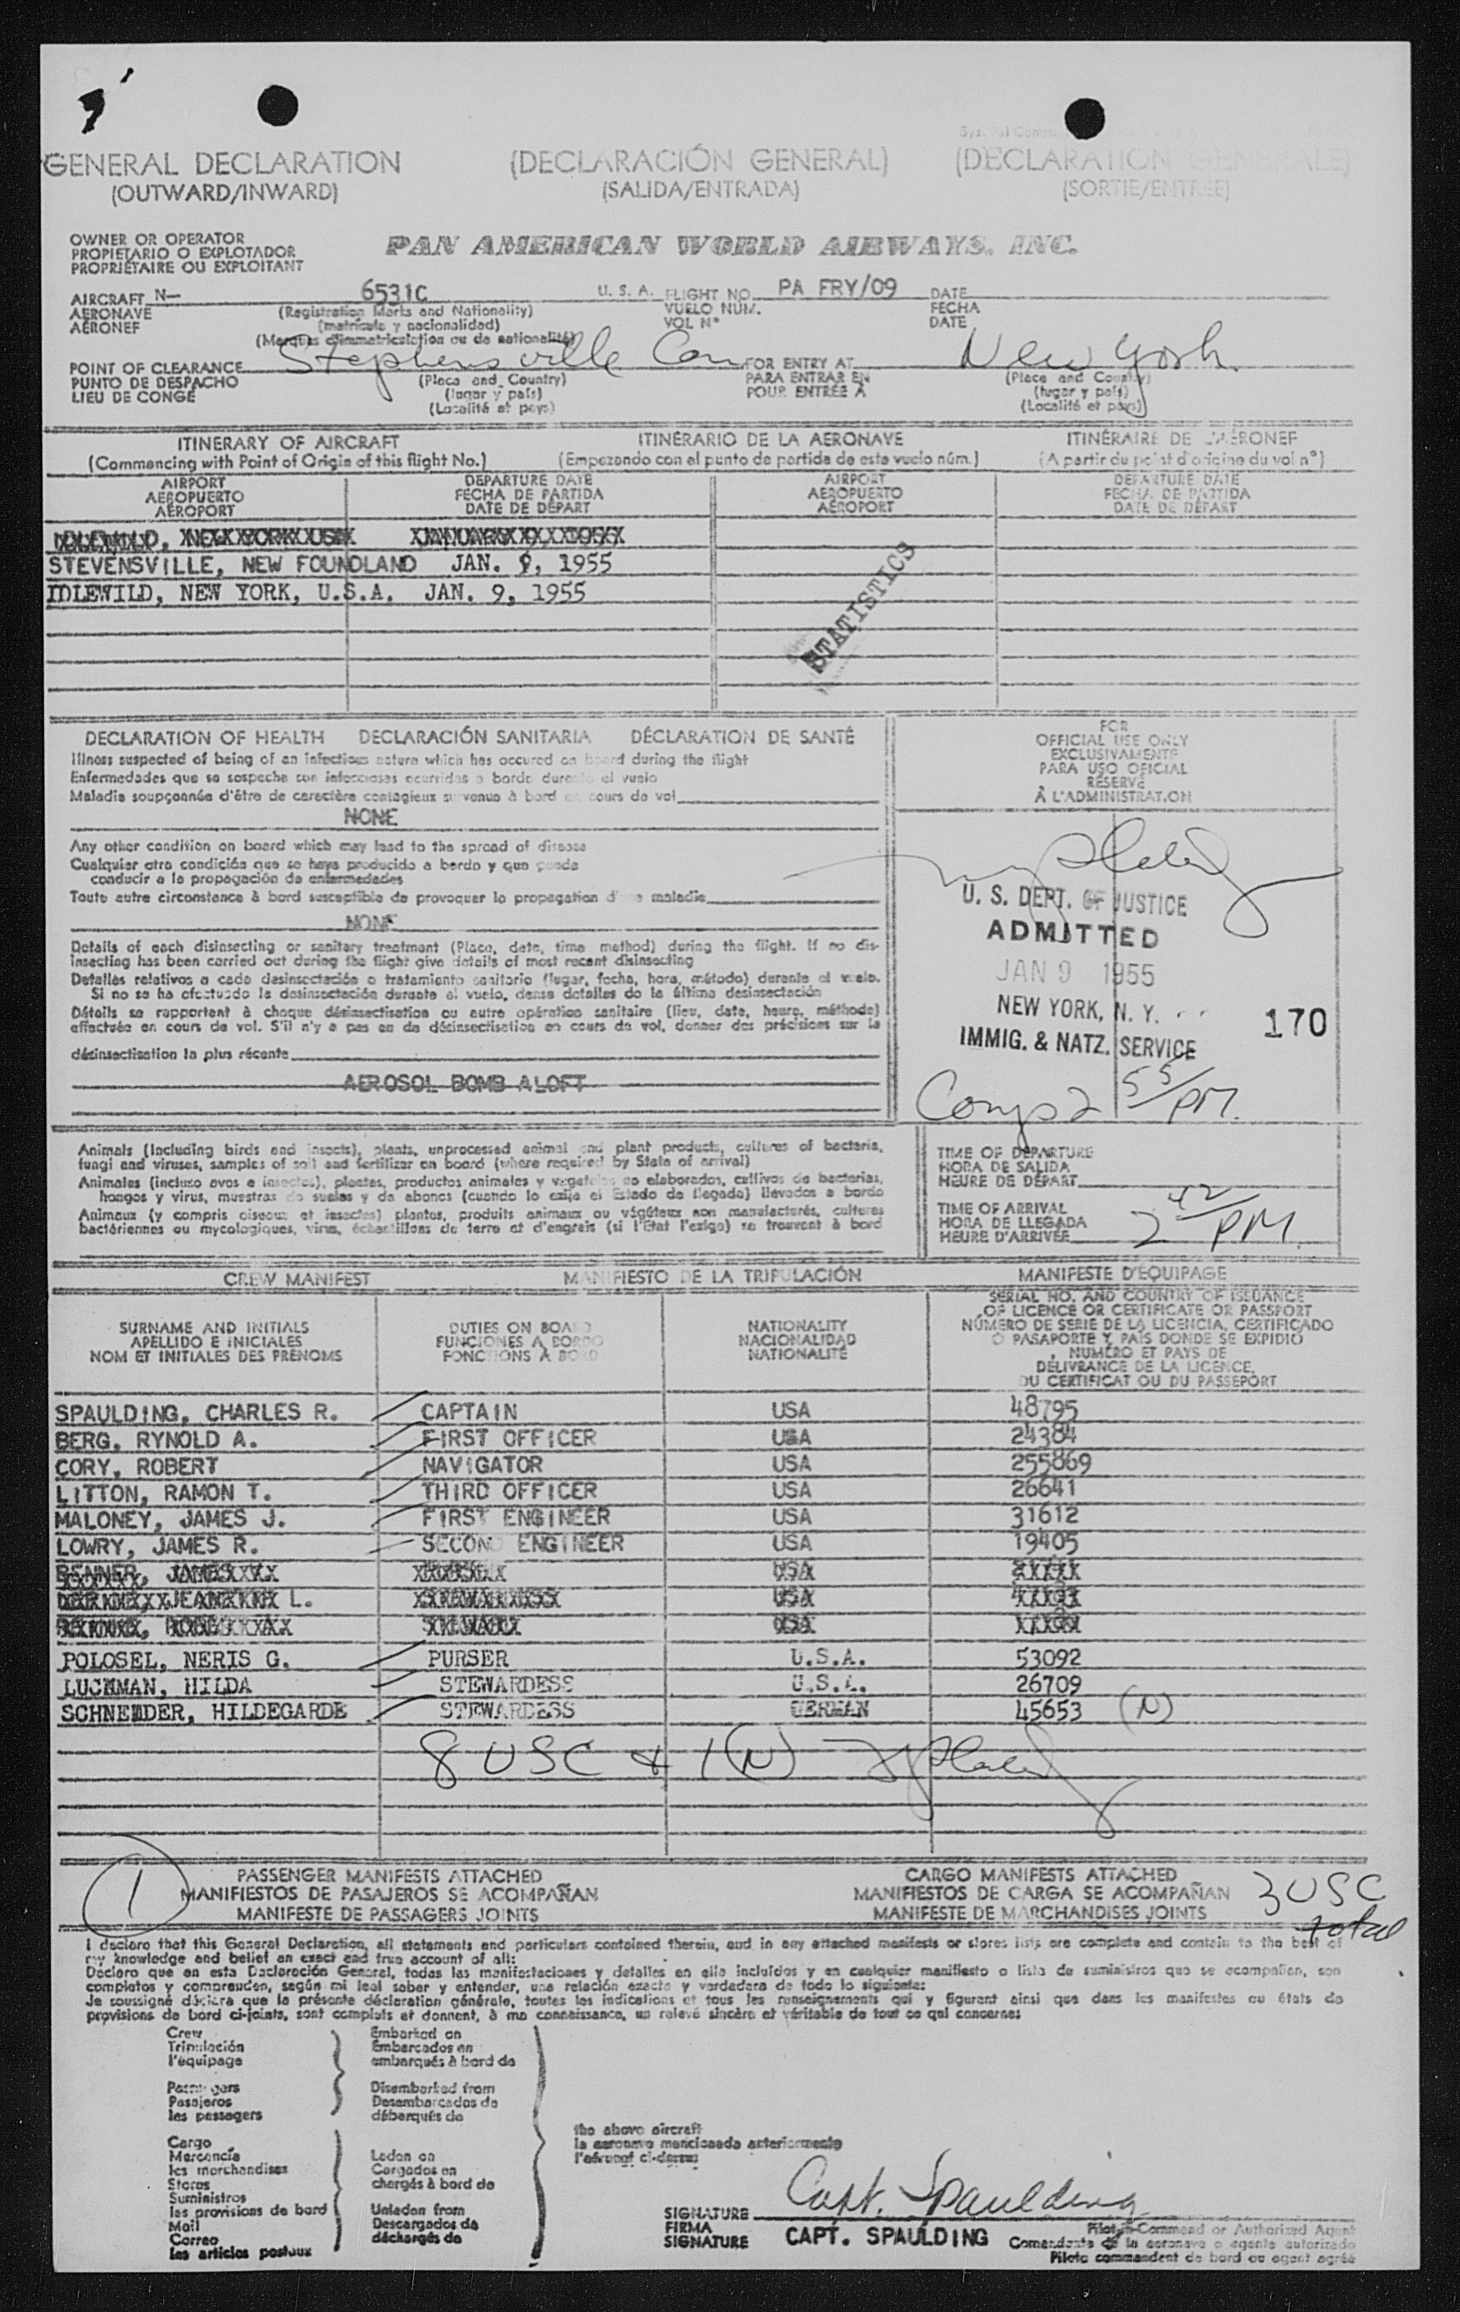 GENERAL DECLARATION (DECLARACIÓN GENERAL) (DECLARATION GENERALE)
(OUTWARD/INWARD) (SALIDA/ENTRADA) (SORTIE/ENTREE)
OWNER OR OPERATOR
PROPIETARIO O EXPLOTADOR
PROPRIÉTAIRE OU EXPLOITANT
PAN AMERICAN WORLD AIRWAYS, INC.
AIRCRAFT N— 6531C U. S. A. FLIGHT NO. PA FRY/09 DATE
AERONAVE (Registration Marks and Nationality) VUELO NÚM. FECHA
AÉRONEF (matrícula y nacionalidad) VOL N° DATE
(Marques d'immatriculation ou de nationalité)
POINT OF CLEARANCE Stephensville Can FOR ENTRY AT New York
PUNTO DE DESPACHO (Place and Country) PARA ENTRAR EN (Place and Country)
LIEU DE CONGÉ (lugar y país) POUR ENTRÉE À (lugar y país)
(Localité et pays) (Localité et pays)
ITINERARY OF AIRCRAFT ITINERARIO DE LA AERONAVE ITINÉRAIRE DE L'AÉRONEF
(Commencing with Point of Origin of this flight No.) (Empezando con el punto de partida de este vuelo núm.) (A partir du point d'origine du vol n°)
AIRPORT DEPARTURE DATE AIRPORT DEPARTURE DATE
AEROPUERTO FECHA DE PARTIDA AEROPUERTO FECHA DE PARTIDA
AÉROPORT DATE DE DÉPART AÉROPORT DATE DE DÉPART
STEVENSVILLE, NEW FOUNDLAND JAN. 9, 1955
IDLEWILD, NEW YORK, U.S.A. JAN. 9, 1955
STATISTICS
DECLARATION OF HEALTH DECLARACIÓN SANITARIA DÉCLARATION DE SANTÉ
Illness suspected of being of an infectious nature which has occured on board during the flight
Enfermedades que se sospeche son infecciosas ocurridas a bordo durante el vuelo
Maladie soupçonnée d'être de caractère contagieux survenue à bord en cours de vol
NONE
Any other condition on board which may lead to the spread of disease
Cualquier otra condición que se haya producido a bordo y que pueda
conducir a la propagación de enfermedades
Toute autre circonstance à bord susceptible de provoquer la propagation d'une maladie
NONE
Details of each disinsecting or sanitary treatment (Place, date, time method) during the flight. If no dis-
insecting has been carried out during the flight give details of most recent disinsecting
Detalles relativos a cada desinsectación o tratamiento sanitario (lugar, fecha, hora, método) durante el vuelo.
Si no se ha efectuado la desinsectación durante el vuelo, dense detalles de la última desinsectación
Détails se rapportent à chaque désinsectisation ou autre opération sanitaire (lieu, date, heure, méthode)
effectuée en cours de vol. S'il n'y a pas eu de désinsectisation en cours de vol, donner des précisions sur la
désinsectisation la plus récente
AEROSOL BOMB ALOFT
FOR
OFFICIAL USE ONLY
EXCLUSIVAMENTE
PARA USO OFICIAL
RÉSERVÉ
À L'ADMINISTRATION
U. S. DEPT. OF JUSTICE
ADMITTED
JAN 9 1955
NEW YORK, N. Y. 170
IMMIG. & NATZ. SERVICE
Comp 2 55/PM.
Animals (Including birds and insects), plants, unprocessed animal and plant products, cultures of bacteria,
fungi and viruses, samples of soil and fertilizer on board (where required by State of arrival)
Animales (incluso aves e insectos), plantas, productos animales y vegetales no elaborados, cultivos de bacterias,
hongos y virus, muestras de suelos y de abonos (cuando lo exija el Estado de llegada) llevados a bordo
Animaux (y compris oiseaux et insectes) plantes, produits animaux ou végétaux non manufacturés, cultures
bactériennes ou mycologiques, virus, échantillons de terre et d'engrais (si l'État l'exige) se trouvant à bord
TIME OF DEPARTURE
HORA DE SALIDA
HEURE DE DÉPART
TIME OF ARRIVAL
HORA DE LLEGADA
HEURE D'ARRIVÉE 2 42/PM.
CREW MANIFEST MANIFIESTO DE LA TRIPULACIÓN MANIFESTE D'ÉQUIPAGE
SURNAME AND INITIALS
APELLIDO E INICIALES
NOM ET INITIALES DES PRÉNOMS
DUTIES ON BOARD
FUNCIONES A BORDO
FONCTIONS À BORD
NATIONALITY
NACIONALIDAD
NATIONALITÉ
SERIAL NO. AND COUNTRY OF ISSUANCE
OF LICENCE OR CERTIFICATE OR PASSPORT
NÚMERO DE SERIE DE LA LICENCIA, CERTIFICADO
O PASAPORTE Y PAÍS DONDE SE EXPIDIÓ
NUMÉRO ET PAYS DE
DÉLIVRANCE DE LA LICENCE,
DU CERTIFICAT OU DU PASSEPORT
SPAULDING, CHARLES R. CAPTAIN USA 48795
BERG, RYNOLD A. FIRST OFFICER USA 24384
CORY, ROBERT NAVIGATOR USA 255869
LITTON, RAMON T. THIRD OFFICER USA 26641
MALONEY, JAMES J. FIRST ENGINEER USA 31612
LOWRY, JAMES R. SECOND ENGINEER USA 19405
POLOSEL, NERIS G. PURSER U.S.A. 53092
LUCKMAN, HILDA STEWARDESS U.S.A. 26709
SCHNEIDER, HILDEGARDE STEWARDESS GERMAN 45653 (N)
8 USC & 1 (N)
1
PASSENGER MANIFESTS ATTACHED CARGO MANIFESTS ATTACHED
MANIFIESTOS DE PASAJEROS SE ACOMPAÑAN MANIFIESTOS DE CARGA SE ACOMPAÑAN 3 USC
MANIFESTE DE PASSAGERS JOINTS MANIFESTE DE MARCHANDISES JOINTS total
I declare that this General Declaration, all statements and particulars contained therein, and in any attached manifests or stores lists are complete and contain to the best of
my knowledge and belief an exact and true account of all:
Declaro que en esta Declaración General, todas las manifestaciones y detalles en ella incluídos y en cualquier manifiesto o lista de suministros que se acompañen, son
completos y comprenden, según mi leal saber y entender, una relación exacta y verdadera de todo lo siguiente:
Je soussigné déclare que la présente déclaration générale, toutes les indications et tous les renseignements qui y figurent ainsi que dans les manifestes ou états de
provisions de bord ci-joints, sont complets et donnent, à ma connaissance, un relevé sincère et véritable de tout ce qui concerne:
Crew Embarked on
Tripulación Embarcados en
l'équipage embarqués à bord de
Passengers Disembarked from
Pasajeros Desembarcados de
les passagers débarqués de
the above aircraft
la aeronave mencionada anteriormente
l'aéronef ci-dessus
Cargo
Mercancía Laden on
les marchandises Cargados en
Stores chargés à bord de
Suministros
les provisions de bord Unladen from
Mail Descargados de
Correo déchargés de
les articles postaux
SIGNATURE Capt. Spaulding
FIRMA
SIGNATURE CAPT. SPAULDING
Pilot-in-Command or Authorized Agent
Comandante de la aeronave o agente autorizado
Pilote commandant de bord ou agent agréé